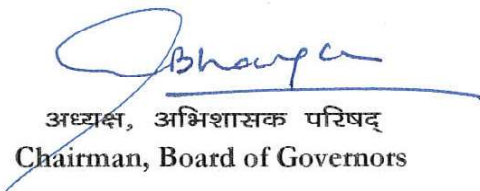 Bhargava
अध्यक्ष, अभिशासक परिषद्
Chairman, Board of Governors